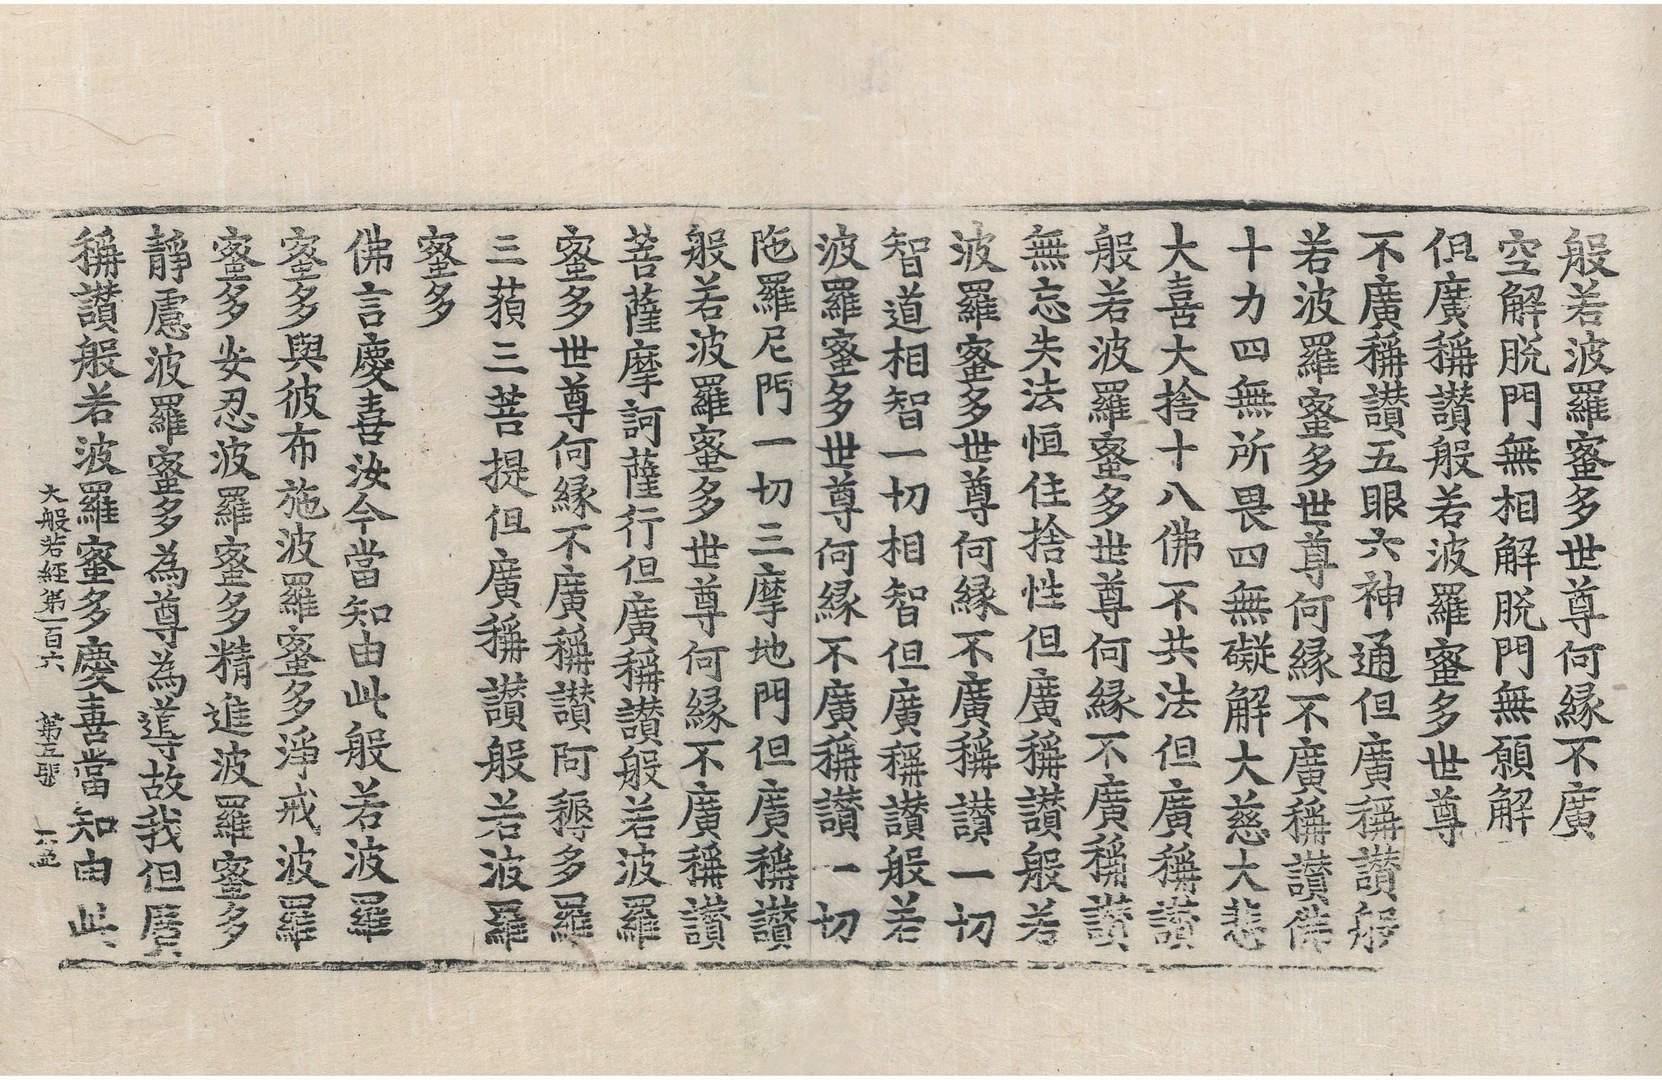 般若波羅蜜多世尊何緣不廣
空解脫門無相解脫門無願解
但廣稱讚般若波羅蜜多世尊
不廣稱讚五眼六神通但廣稱讚般
若波羅蜜多世尊何緣不廣稱讚佛
十力四無所畏四無礙解大慈大悲
大喜大捨十八佛不共法但廣稱讚
般若波羅蜜多世尊何緣不廣稱讚
無忘失法恒住捨性但廣稱讚般若
波羅蜜多世尊何緣不廣稱讚一切
智道相智一切相智但廣稱讚般若
波羅蜜多世尊何緣不廣稱讚一切
陁羅尼門一切三摩地門但廣稱讚
般若波羅蜜多世尊何緣不廣稱讚
菩薩摩訶薩行但廣稱讚般若波羅
蜜多世尊何緣不廣稱讚阿耨多羅
三藐三菩提但廣稱讚般若波羅
蜜多
佛言慶喜汝今當知由此般若波羅
蜜多與彼布施波羅蜜多淨戒波羅
蜜多安忍波羅蜜多精進波羅蜜多
靜慮波羅蜜多為尊為導故我但廣
稱讚般若波羅蜜多慶喜當知由此
大般若經第一百六 第五張